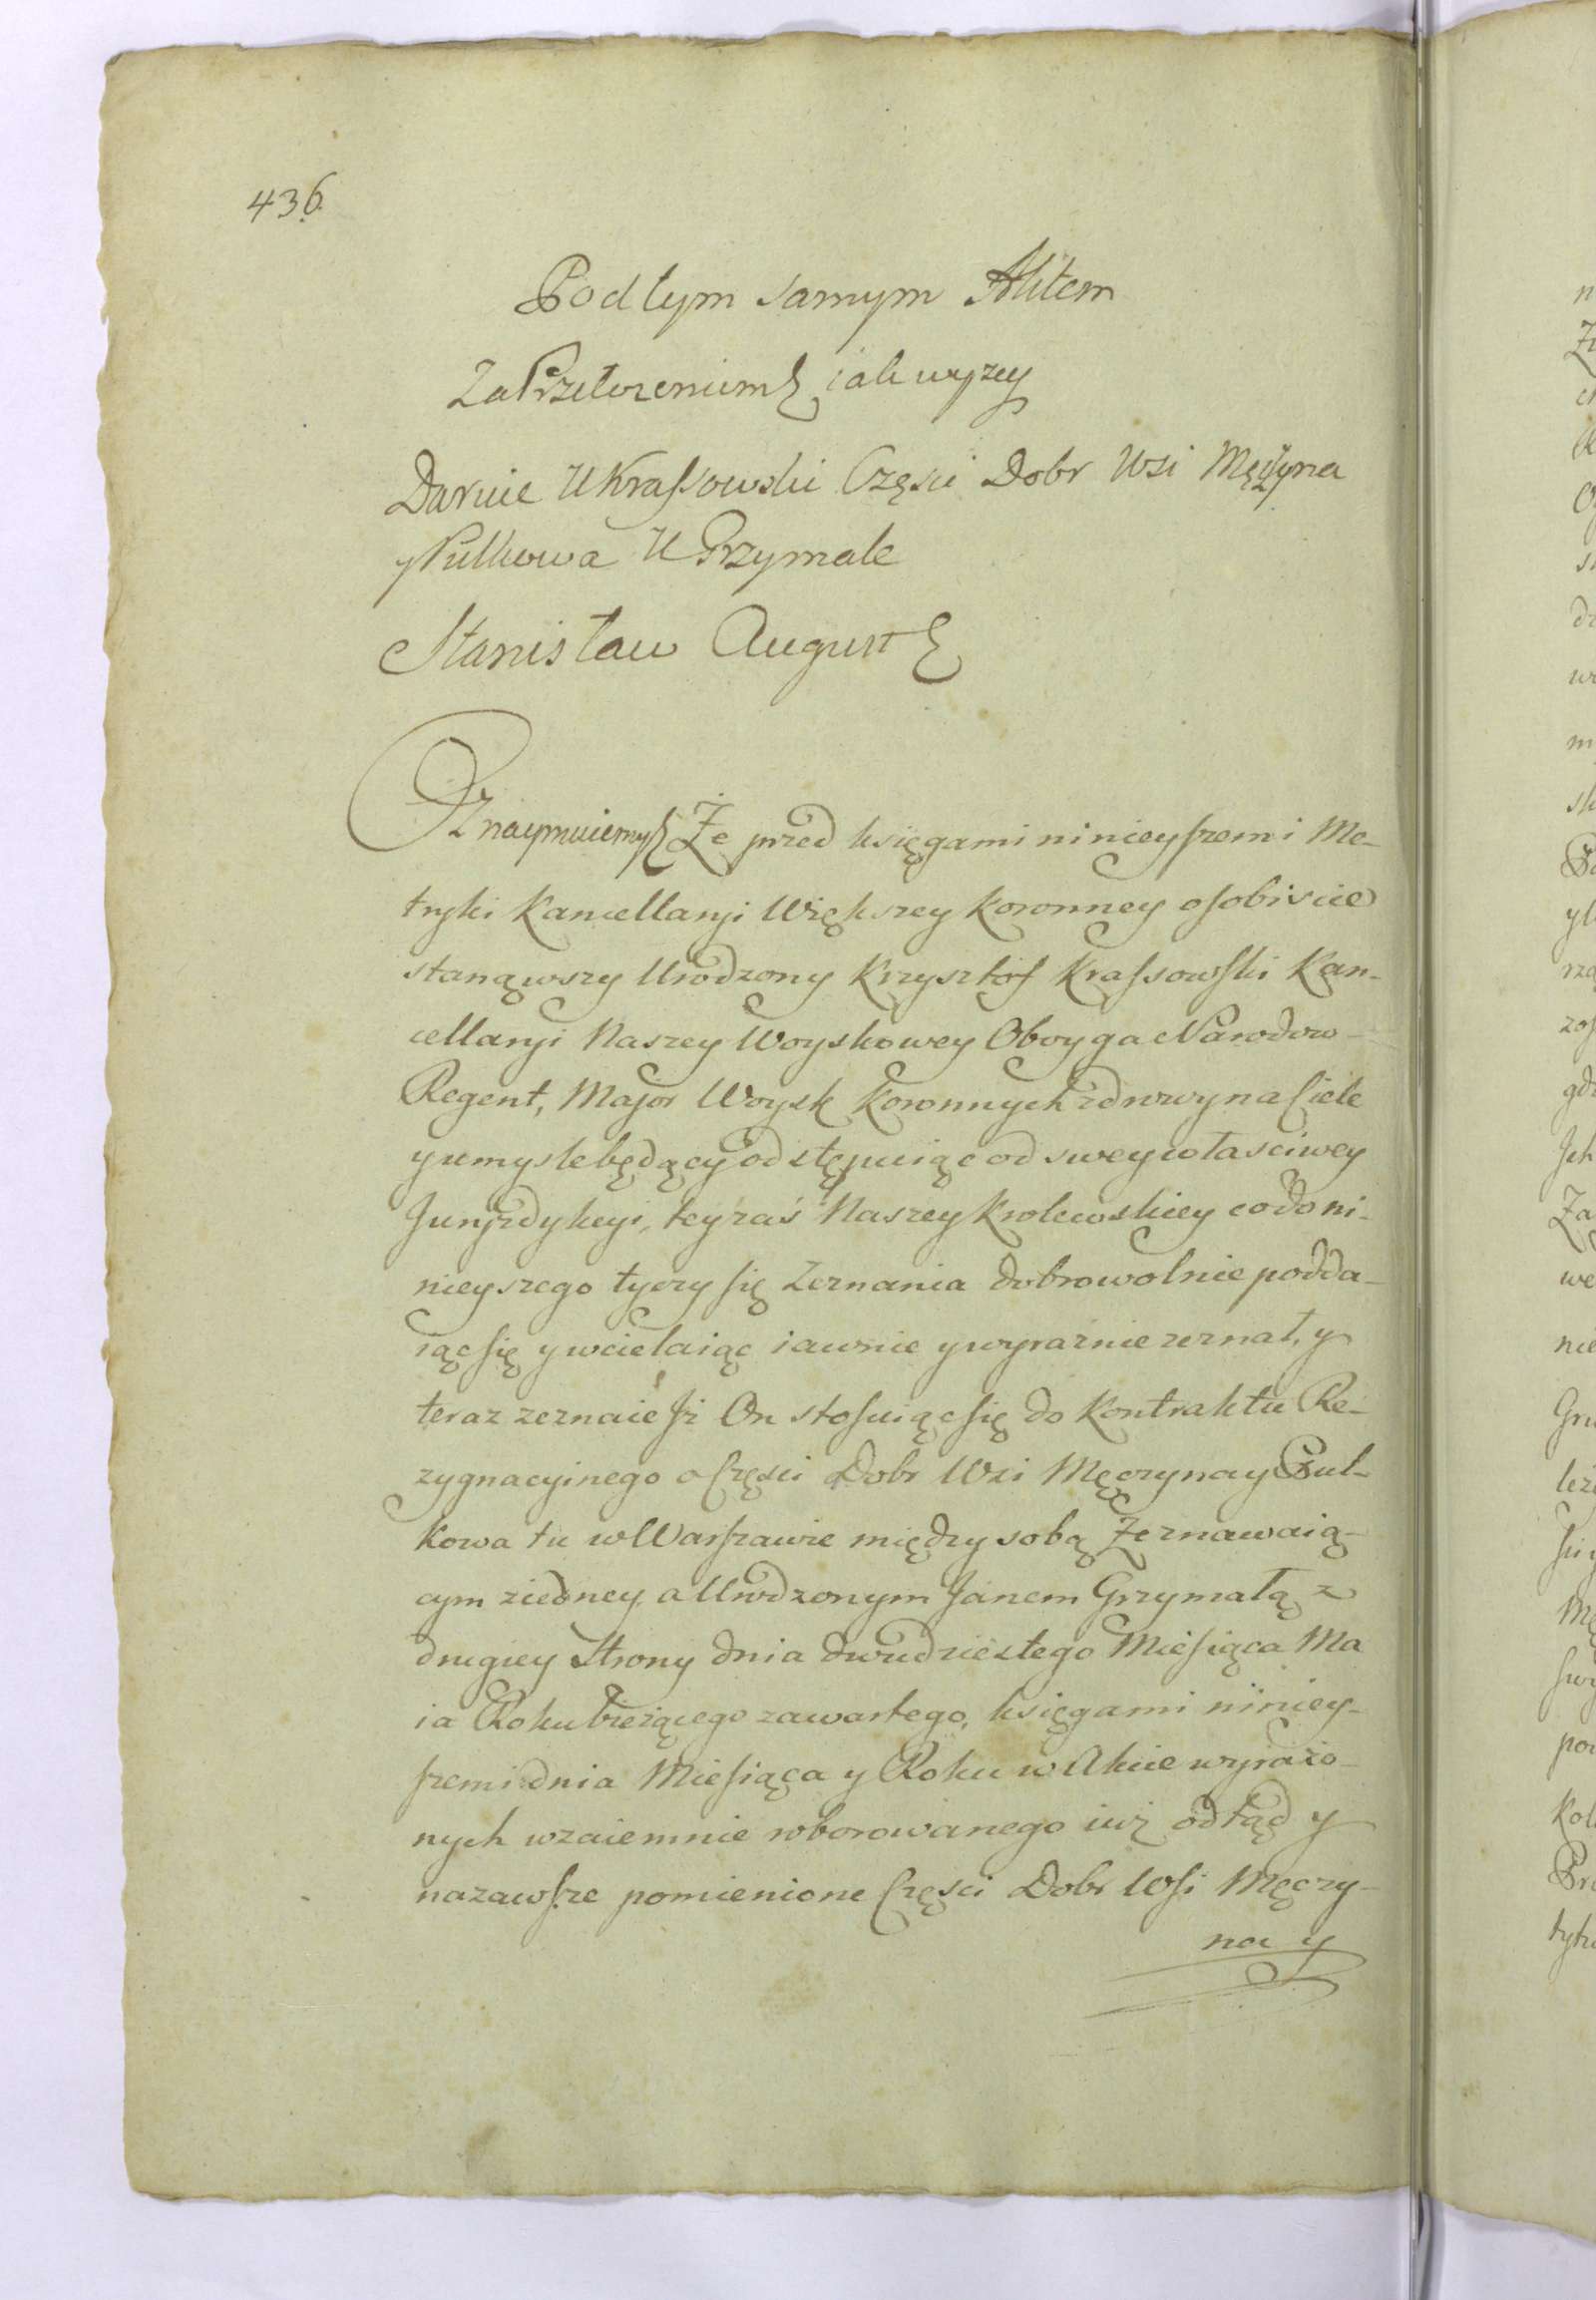 436.
Pod tym samym Aktem
Za Przełożeniem iak wyzey
Daruie U Krassowski Częsci Dobr Wsi Męczyna
y Pulkowa U Grzymale
Stanisław August
Oznaymuiemy Że przed księgami ninieyszemi Me-
tryki Kancellaryi Większey Koronney osobiscie
stanąwszy Urodzony Krzysztof Krassowski Kan-
cellaryi Naszey Woyskowey Oboyga Narodow
Regent, Major Woysk Koronnych zdrowy na Ciele
y umysle będący odstępuiąc od swey własciwey
Juryzdykcyi, tey zaś Naszey Krolewskiey co do ni-
nieyszego tyczy się Zeznania dobrowolnie podda-
iąc się y wcielaiąc iawnie y wyraźnie zeznał, y
teraz zeznaie Jż On stosuiąc się do Kontraktu Re-
zygnacyinego o Częsci Dobr Wsi Męczyna y Pul-
kowa tu w Warszawie między sobą Zeznawaią-
cym z iedney, a Urodzonym Janem Grzymałą z
drugiey Strony dnia dwudziestego Miesiąca Ma
ia Roku bieżącego zawartego, księgami niniey-
szemi dnia Miesiąca y Roku w Akcie wyrażo-
nych wzaiemnie roborowanego iuż odtąd y
nazawsze pomienione Częsci Dobr Wsi Męczy-
na y